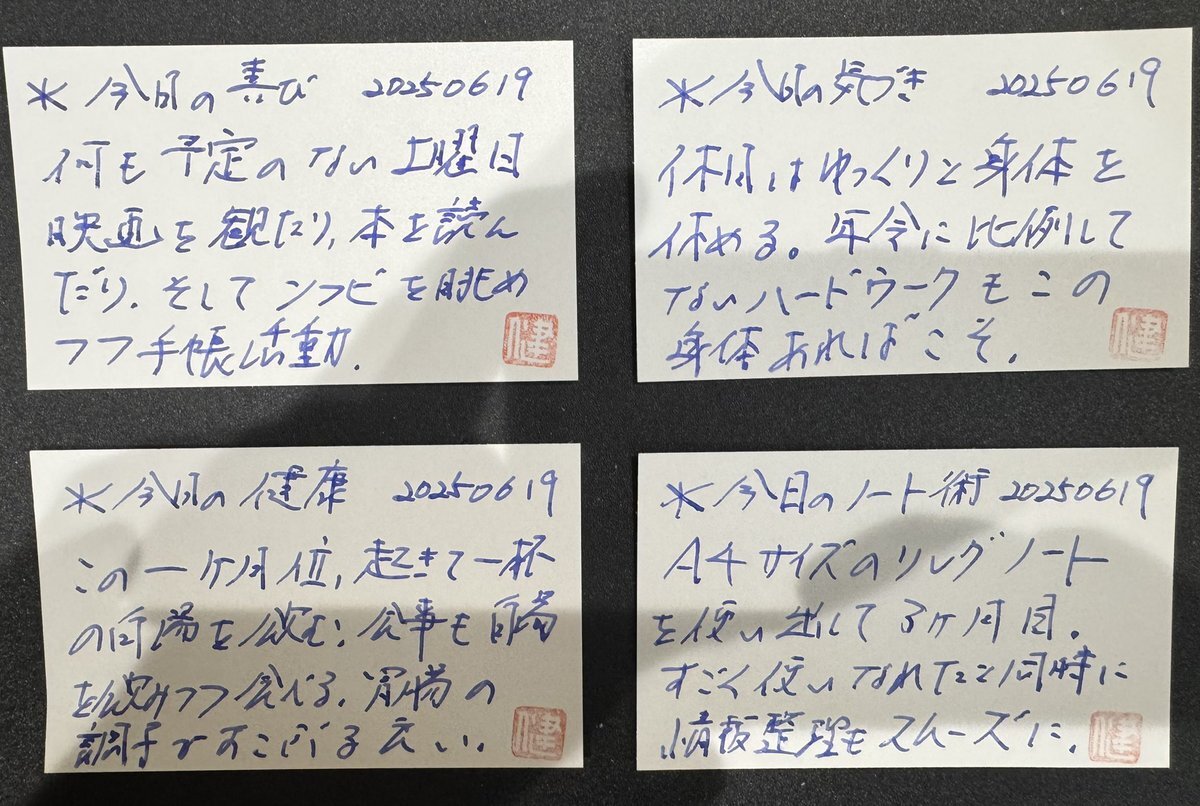 ＊今日の喜び 20250619
何も予定のない土曜日
映画を観たり、本を読ん
だり。そしてンフビを眺め
つつ手帳活動。
健
＊今日の気づき 20250619
休日はゆっくりと身体を
休める。年令に比例して
ないハードワークもこの
身体あればこそ。
健
＊今日の健康 20250619
この一ヶ月位、起きて一杯
の白湯を飲む。食事も白湯
を飲みつつ食べる。胃腸の
調子がすこぶる良い。
健
＊今日のノート術 20250619
A4サイズのリングノート
を使い出して3ヶ月目。
すごく使いなれたと同時に
情報整理もスムーズに。
健